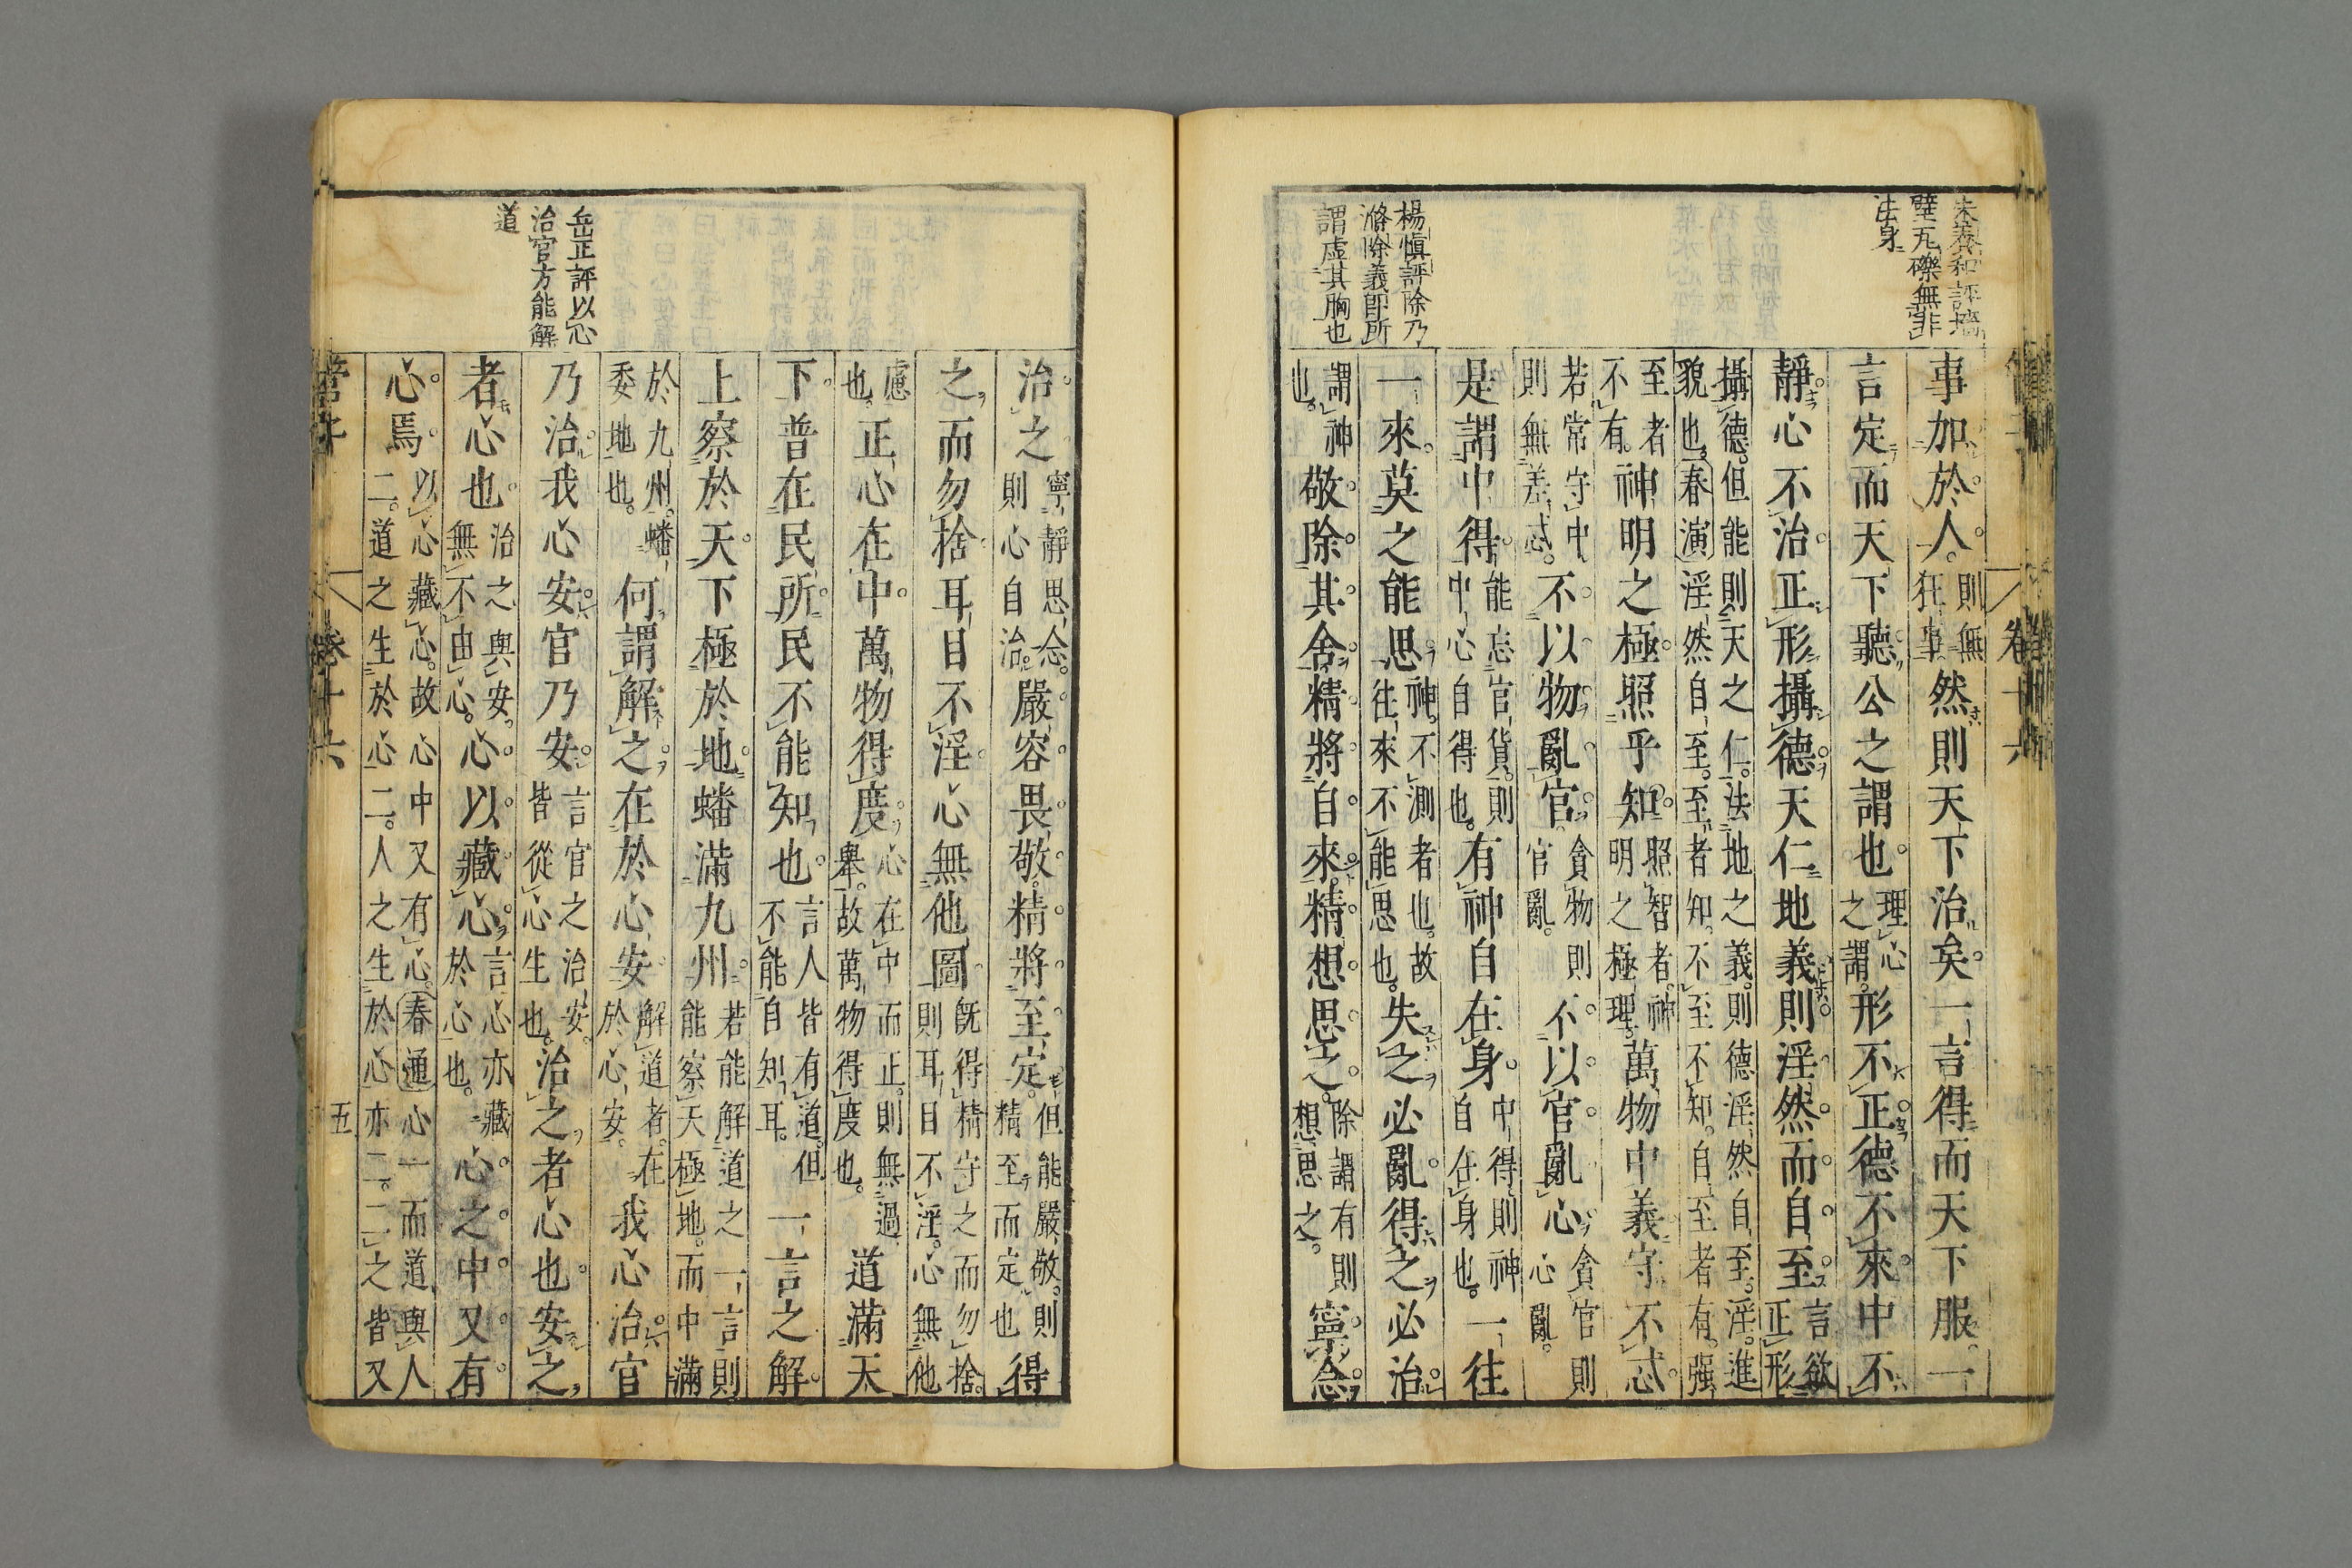 朱養和評墻
壁瓦礫無非
法身
楊慎評除乃
滌除義即所
謂虛其胸也
事加於人則無狂事然則天下治矣一言得而天下服一
言定而天下聽公之謂也理心之謂形不正德不來中不
靜心不治正形攝德天仁地義則淫然而自至言欲正形
攝德但能則天之仁法地之義則德淫然自至淫進貌也春演淫然自至至者知不至不知自至者有强
至者不有神明之極照乎知照智者神明之極理萬物中義守不忒
若常守中則無差忒不以物亂官貪物則官亂不以官亂心貪官則心亂
是謂中得能忘官貨則中心自得也有神自在身中得則神自在身也一往
一來莫之能思神不測者也故往來不能思也失之必亂得之必治
謂神也敬除其舍精將自來精想思之除謂有則想思之寧念
岳正評以心
治官方能解
道
治之寧靜思念則心自治嚴容畏敬精將至定但能嚴敬則精至而定也得
之而勿捨耳目不淫心無他圖既得精守之而勿捨則耳目不淫心無他
慮也正心在中萬物得度心在中而正則無過舉故萬物得度也道滿天
下普在民所民不能知也言人皆有道但不能自知耳一言之解
上察於天下極於地蟠滿九州若能解道之一言則能察天極地而中滿
於九州蟠委地也何謂解之在於心安解道者在於心安我心治官
乃治我心安官乃安言官之治安皆從心生也治之者心也安之
者心也治之與安無不由心心以藏心言心亦藏於心也心之中又有
心焉以心藏心故心中又有心春通心一而道與人二道之生於心二人之生於心亦二二之皆又
管子
卷十六
五